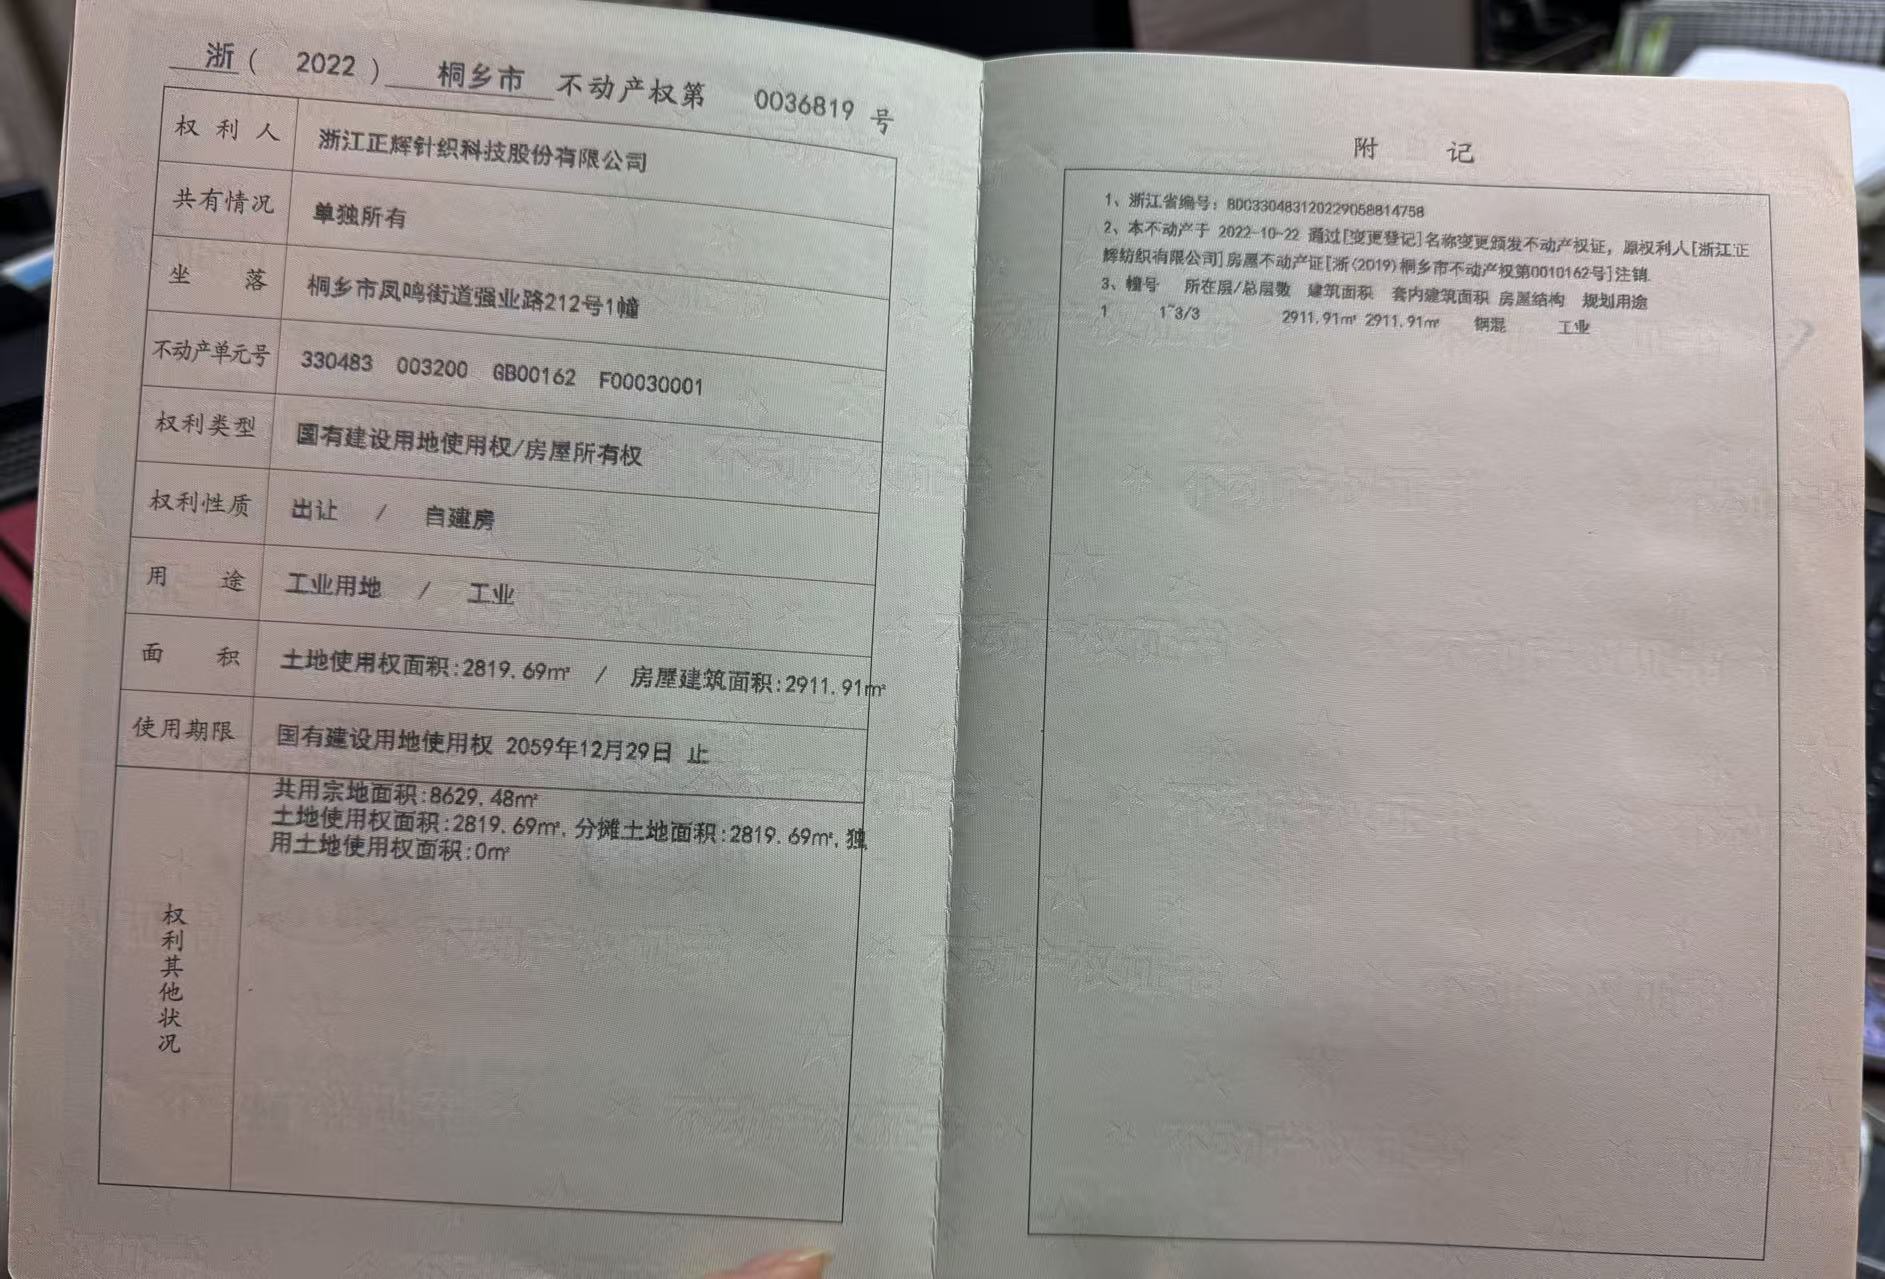 浙( 2022 ) 桐乡市 不动产权第 0036819 号
权利人 浙江正辉针织科技股份有限公司
共有情况 单独所有
坐落 桐乡市凤鸣街道强业路212号1幢
不动产单元号 330483 003200 GB00162 F00030001
权利类型 国有建设用地使用权/房屋所有权
权利性质 出让 / 自建房
用途 工业用地 / 工业
面积 土地使用权面积:2819.69㎡ / 房屋建筑面积:2911.91㎡
使用期限 国有建设用地使用权 2059年12月29日 止
权利其他状况
共用宗地面积:8629.48㎡
土地使用权面积:2819.69㎡,分摊土地面积:2819.69㎡,独
用土地使用权面积:0㎡
附 记
1、浙江省编号:BDC330483120229058814758
2、本不动产于 2022-10-22 通过[变更登记]名称变更颁发不动产权证，原权利人[浙江正
辉纺织有限公司]房屋不动产证[浙(2019)桐乡市不动产权第0010162号]注销.
3、幢号 所在层/总层数 建筑面积 套内建筑面积 房屋结构 规划用途
1 1~3/3 2911.91㎡ 2911.91㎡ 钢混 工业